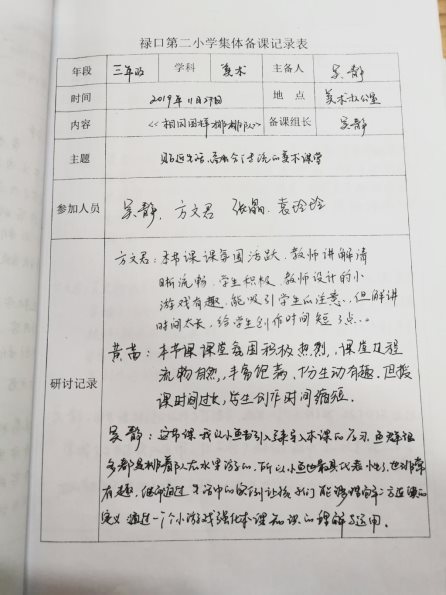 禄口第二小学集体备课记录表
年段 三年级 学科 美术 主备人 吴静
时间 2019年11月27日 地点 美术办公室
内容 《相同图样排排队》 备课组长 吴静
主题 贴近生活的美术课堂
参加人员 吴静、方文君 张晶、袁玲玲
研讨记录
方文君：本节课课氛围活跃、教师讲解清
晰流畅、学生积极、教师设计的小
游戏有趣、能吸引学生的注意、但解讲
时间太长，给学生创作时间短了点。
黄苗：本节课课堂氛围积极热烈，课堂过程
流畅自然，丰富饱满，十分生动有趣。但授
课时间过长，学生创作时间缩短。
吴静：这节课我以小鱼引入本课的
多都是排着队在水里游的，所以小鱼最具代表性了，也非常
有趣，生活中的实例让孩子们能够理解二方连续的
定义 通过一个小游戏强化本课知识的理解与运用。